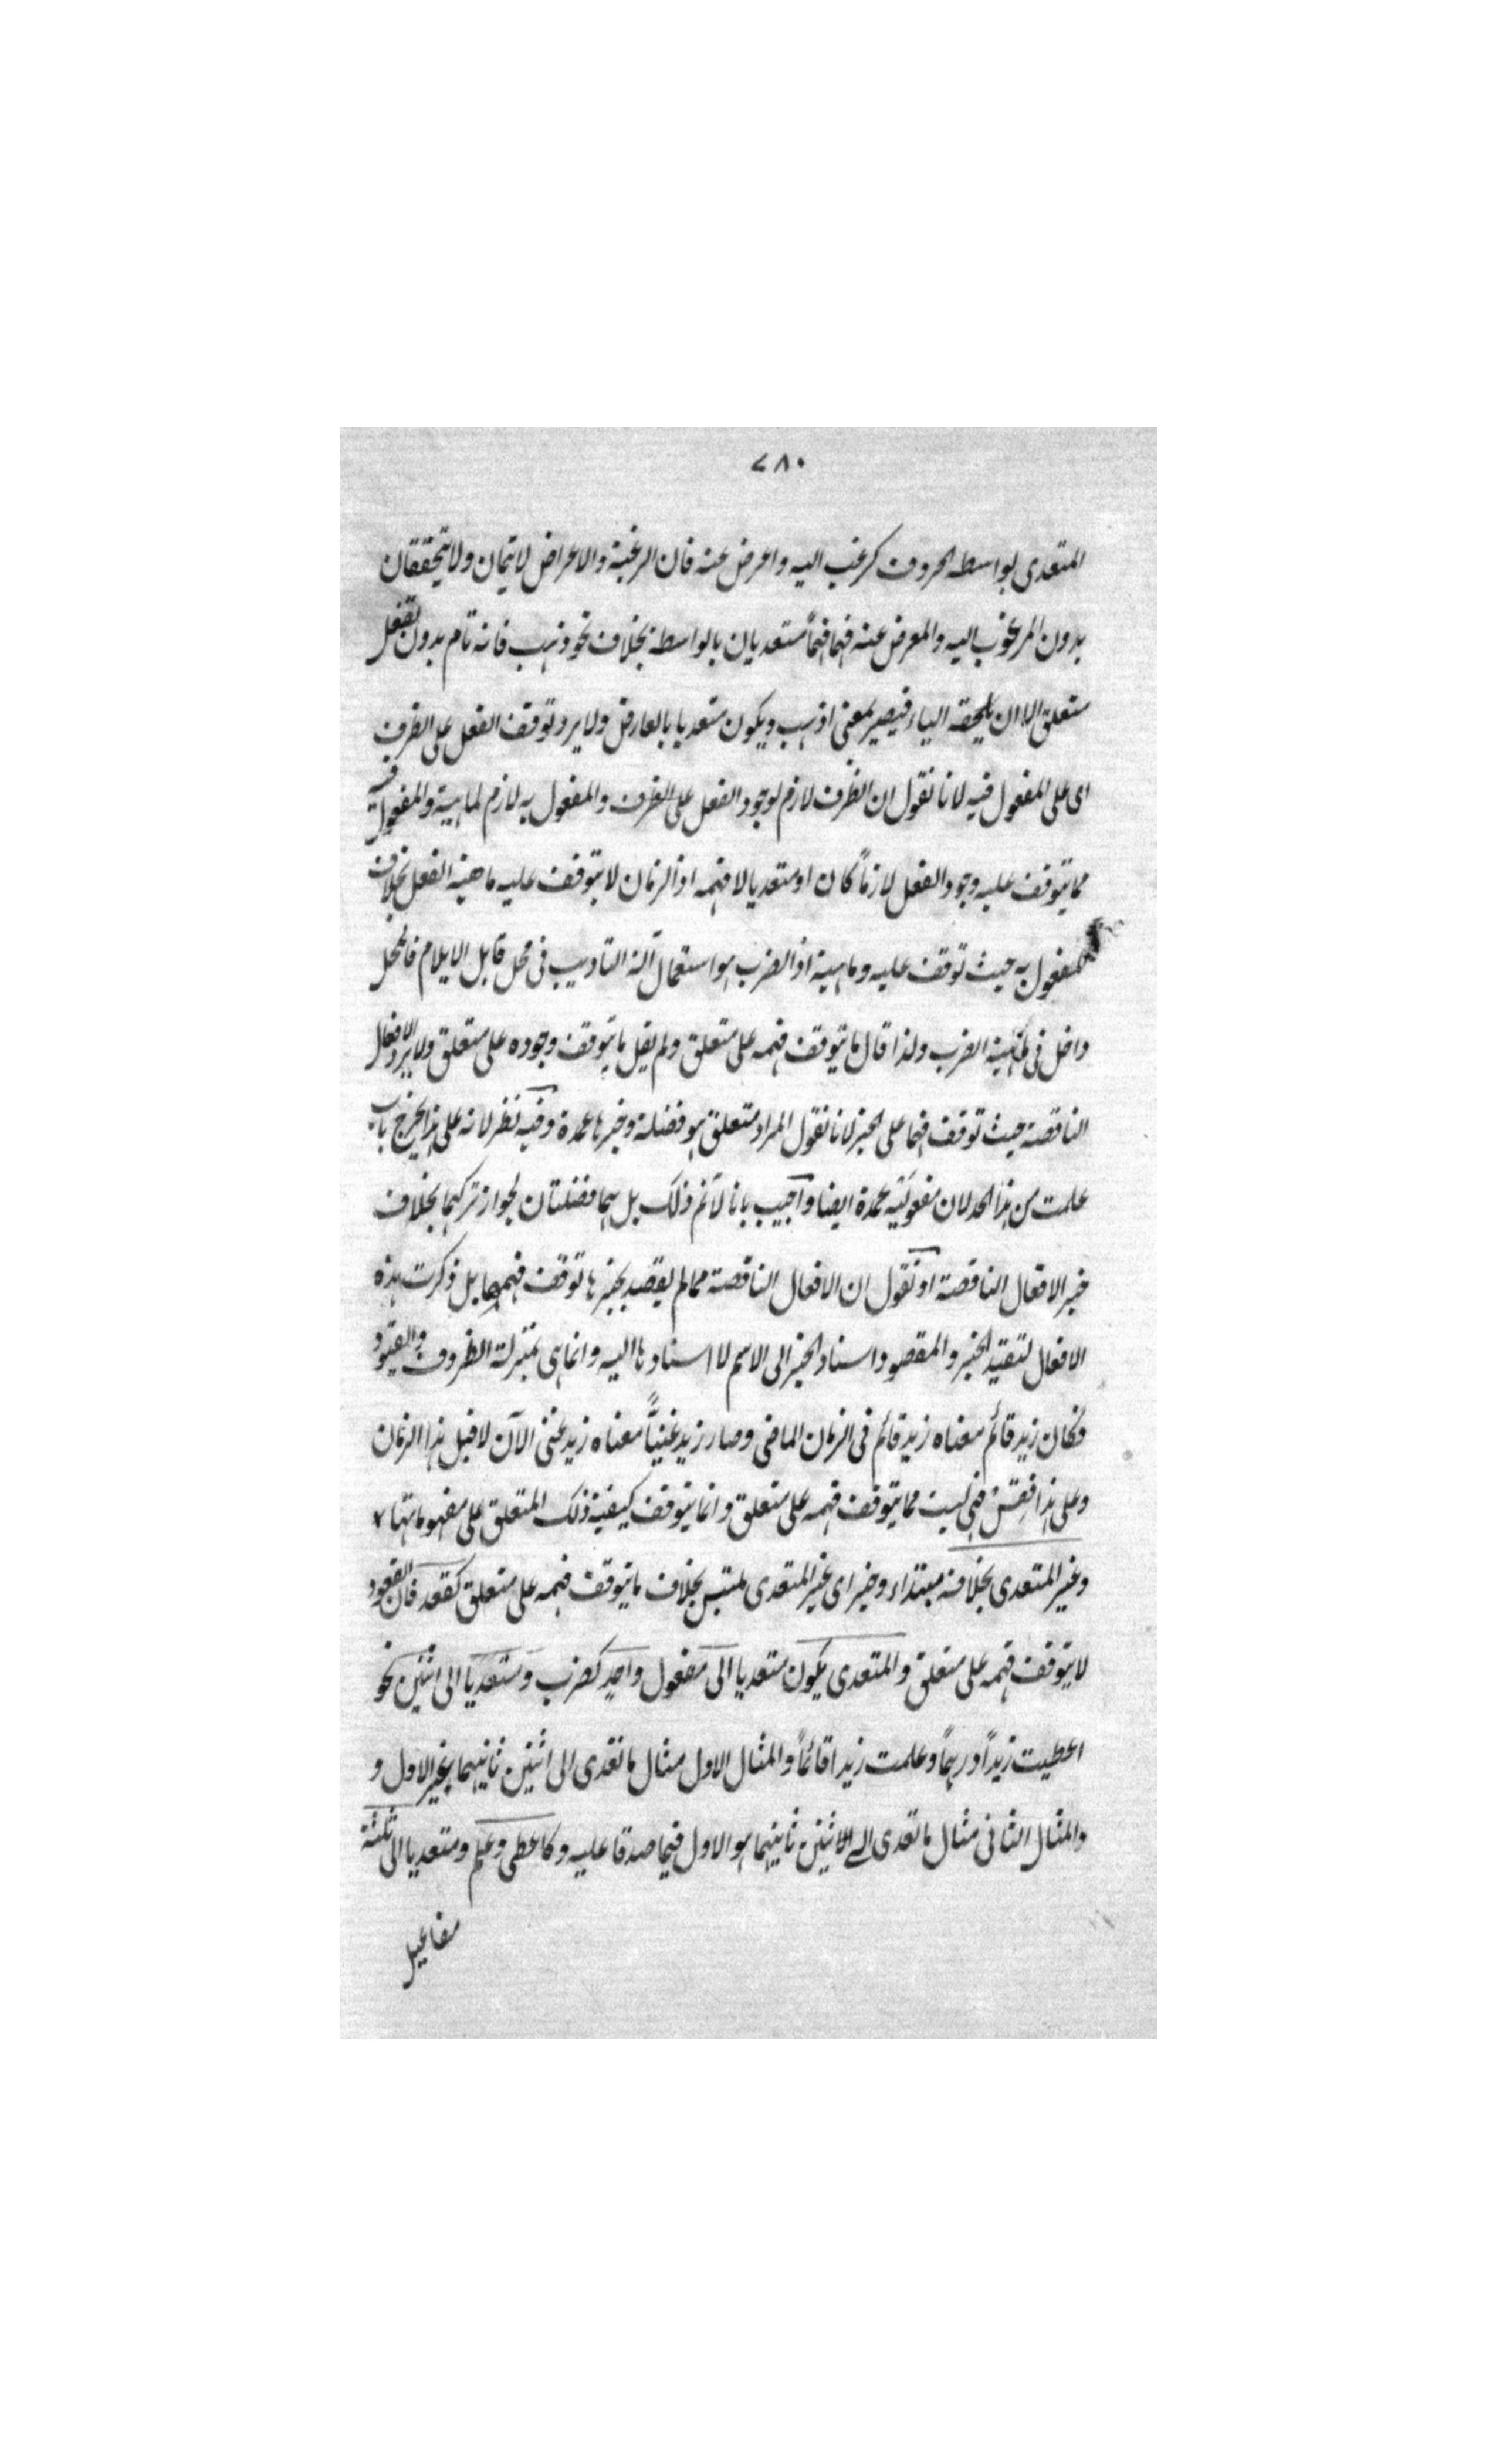 ٧٨٠
المتعدى بواسطه الحروف كرغب اليه واعرض عنه فان الرغبة والاعراض لا يتمان ولا يتحققان
بدون المرغوب اليه والمعرض عنه فهما متعديان بالواسطة بخلاف نحو ذهب فانه تام بدون تعقل
متعلق الا ان يلحقه الباء فيصير بمعنى اذهب ويكون متعديا بالعارض ولا يرد توقف الفعل على الظرف
اى على المفعول فيه لانا نقول ان الظرف لازم لوجود الفعل على الظرف والمفعول به لازم لماهية والمفعول فيه
مما يتوقف عليه وجود الفعل لازماً كان او متعديا لا فهمه اذ الزمان لا يتوقف عليه ماهية الفعل بخلاف
المفعول به حيث توقف عليه وماهية اذ الضرب هو استعمال آلة التاديب فى محل قابل الايلام فالمحل
داخل فى ماهية الضرب ولذا قال ما يتوقف فهمه على متعلق ولم يقل ما يتوقف وجوده على متعلق ولا يرد الافعال
الناقصة حيث توقف فهما على الخبر لانا نقول المراد متعلق هو فضلة وخبرها عمدة وفيه نظر لانه على هذا يخرج باب
علمت من هذا الحد لان مفعوليه عمدة ايضا واجيب بانا لا نم ذلك بل هما فضلتان لجواز تركهما بخلاف
خبر الافعال الناقصة او نقول ان الافعال الناقصة مما لم يقصد بخبرها توقف فهمها بل ذكرت هذه
الافعال لتقييد الخبر والمقصود اسناد الخبر الى الاسم لا اسنادها اليه وانما هى بمنزلة الظروف والقيود
فكان زيد قائم معناه زيد قائم فى الزمان الماضى وصار زيد غنياً معناه زيد غنى الآن لا قبل هذا الزمان
وعلى هذا فقس فهى ليست مما يتوقف فهمه على متعلق وانما يتوقف كيفية ذلك المتعلق على مفهوماتها
وغير المتعدى بخلافه مبتداء وخبر اى غير المتعدى ملتبس بخلاف ما يتوقف فهمه على متعلق كقعد فان القعود
لا يتوقف فهمه على متعلق والمتعدى يكون متعديا الى مفعول واحد كضرب ومتعديا الى اثنين نحو
اعطيت زيداً درهماً وعلمت زيدا قائماً والمثال الاول مثال ما تعدى الى اثنين ثانيهما بغير الاول و
والمثال الثانى مثال ما تعدى الى الاثنين ثانيهما هو الاول فيما صدقا عليه وكاعطى وعلم ومتعديا الى ثلثة
مفاعيل